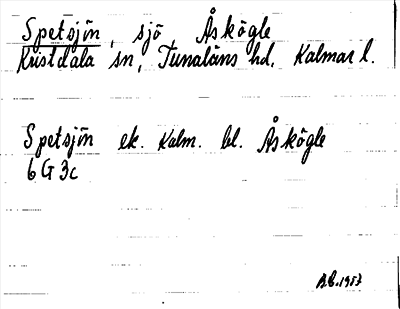 Spetsjön, sjö, Åskögle
Kristdala sn, Tunaläns hd, Kalmar l.
Spetsjön ek. Kalm. bl. Åskögle
6 G 3c
1953